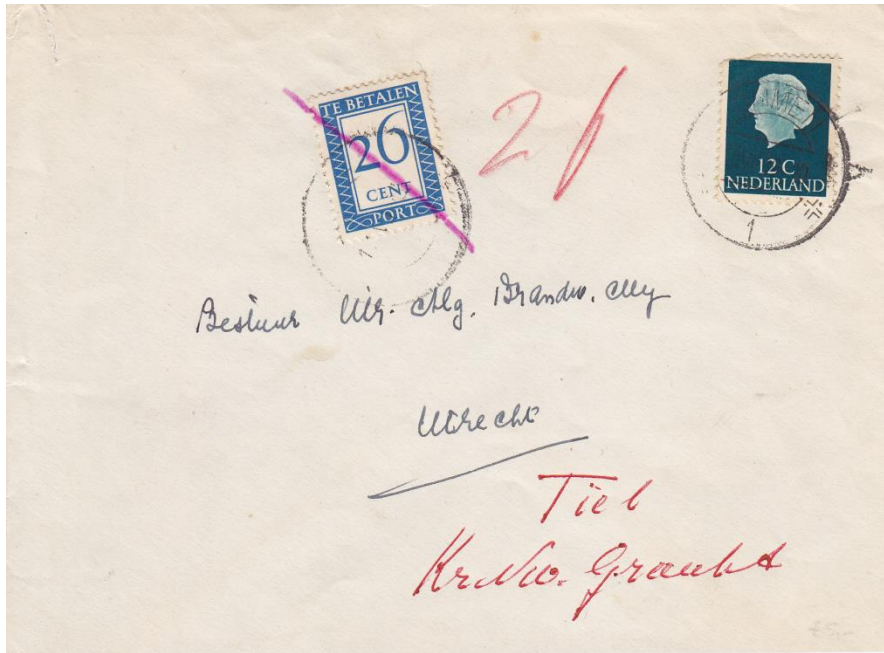 TE BETALEN
26
CENT
PORT
26
12 C
NEDERLAND
1
1
Bestuur Utr. Alg. Brandw. Mij
Utrecht
Tiel
Kr. Nw. Gracht